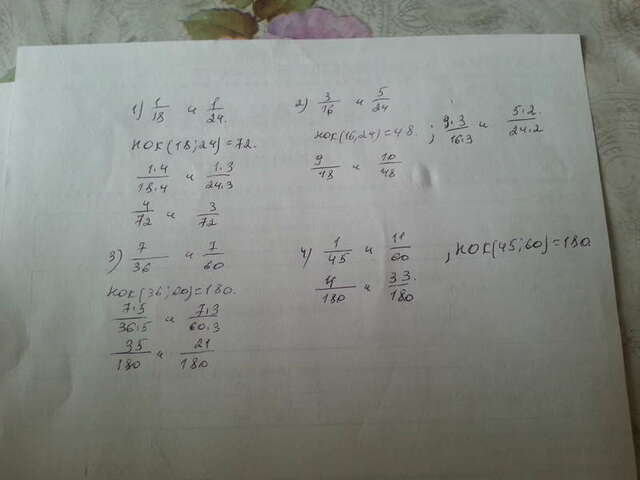 1) 1/18 и 1/24.
НОК(18;24)=72.
1·4/18·4 и 1·3/24·3
4/72 и 3/72
2) 3/16 и 5/24
НОК(16,24)=48. ; 3·3/16·3 и 5·2/24·2
9/48 и 10/48
3) 7/36 и 7/60
НОК(36;60)=180.
7·5/36·5 и 7·3/60·3
35/180 и 21/180
4) 1/45 и 11/60 ; НОК(45;60)=180
4/180 и 33/180